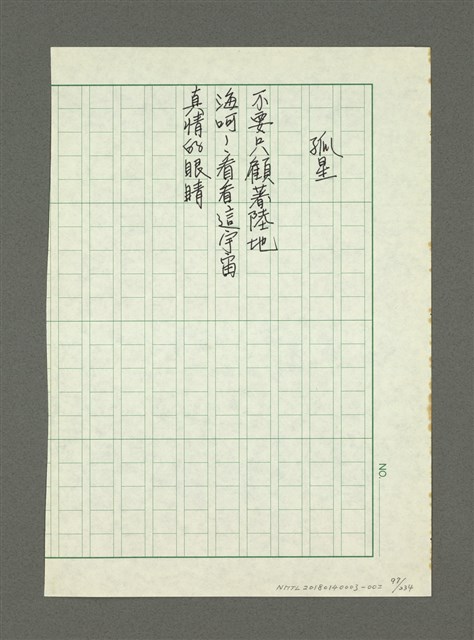 孤星
不要只顧著陸地
海呵,看看這宇宙
真情的眼睛
NO.
NMTL20180140003-002
97/234